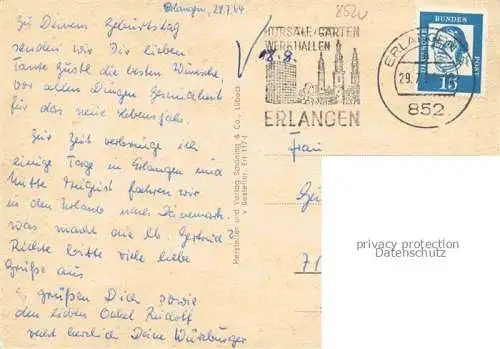 Erlangen, 29.7.64
Zu Deinem Geburtstag
senden wir Dir liebe
Tante Gustl die besten Wünsche,
vor allen Dingen Gesundheit
für das neue Lebensjahr.
Zur Zeit verbringe ich
einige Tage in Erlangen und
Mitte August fahren wir
in den Urlaub nach Dänemark.
Was macht die lb. Gertrud?
Richte bitte viele liebe
Grüße aus
Es grüßen Dich sowie
den lieben Onkel Rudolf
recht herzlich Deine Würzburger
Hersteller und Verlag Schöning & Co., Lübeck
v Bestellnr. Erl 117-1
8520
HÖRSÄLE/GÄRTEN
WERKHALLEN
8.8.
ERLANGEN
ERLANGEN
29.7.
852
DEUTSCHE BUNDESPOST
15
Frau
71
privacy protection
Datenschutz